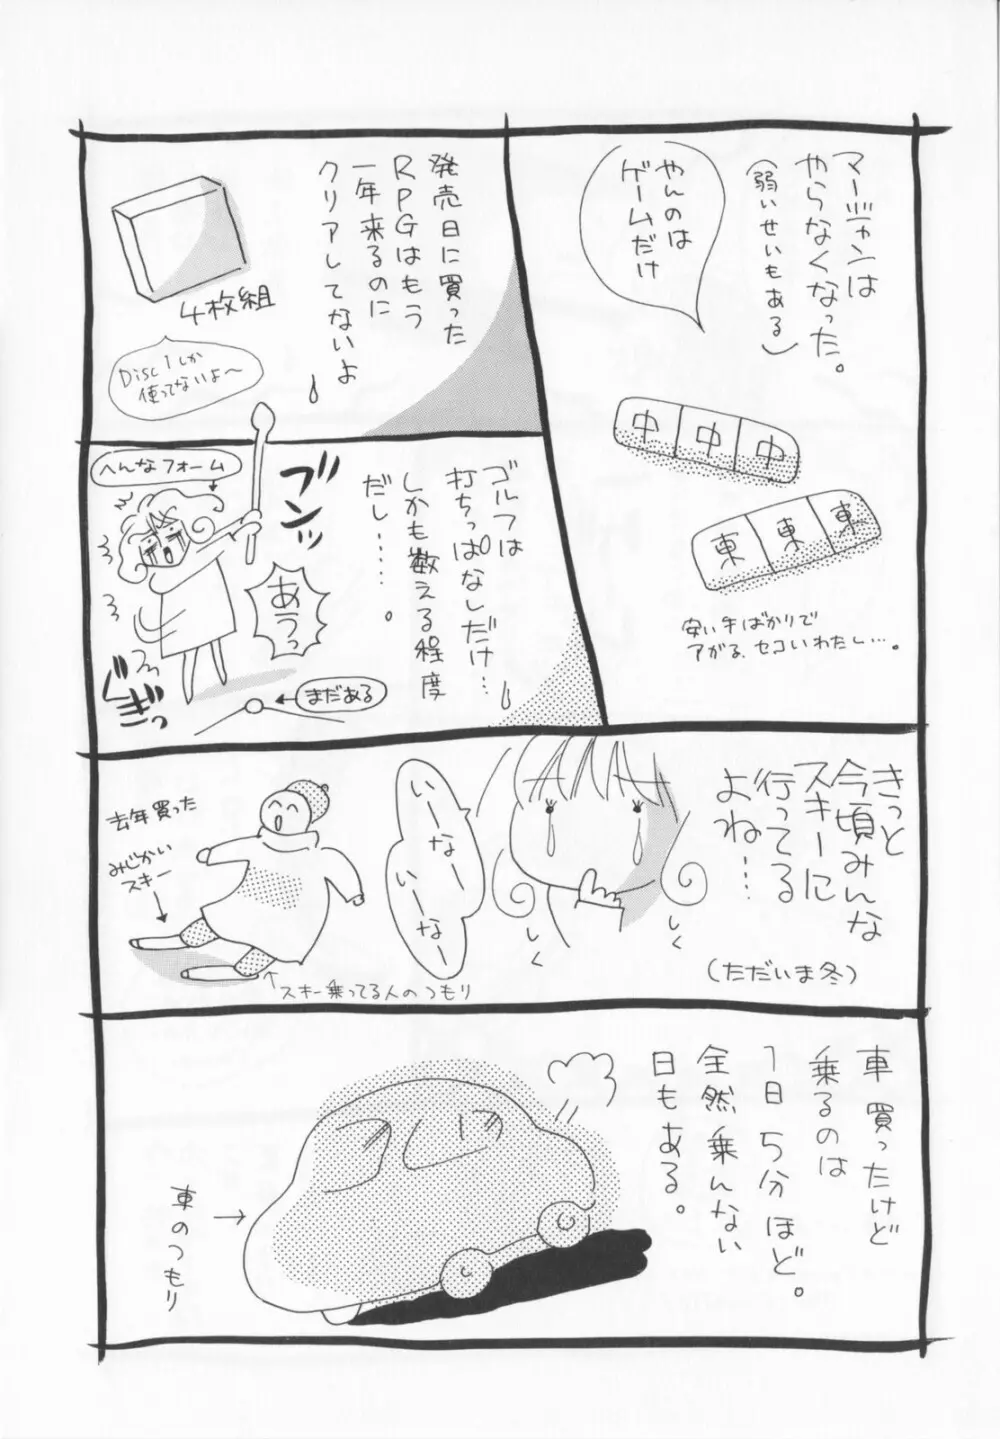 マージャンは
やらなくなった。
(弱いせいもある)
やんのは
ゲームだけ
中中中
東東東
安い手ばかりで
アがる、セコいわたし…。
発売日に買った
RPGはもう
一年来るのに
クリアしてないよ
4枚組
Disc1しか
使ってないよ〜
ゴルフは
打ちっぱなしだけ…
しかも数える程度
だし……。
ブンッ
へんなフォーム
あうっ
まだある
ぎっ
きっと
今頃みんな
スキーに
行ってる
よね…
(ただいま冬)
しく
しく
いーなー
いーなー
去年買った
みじかい
スキー
スキー乗ってる人のつもり
車買ったけど
乗るのは
1日5分ほど。
全然乗んない
日もある。
車のつもり